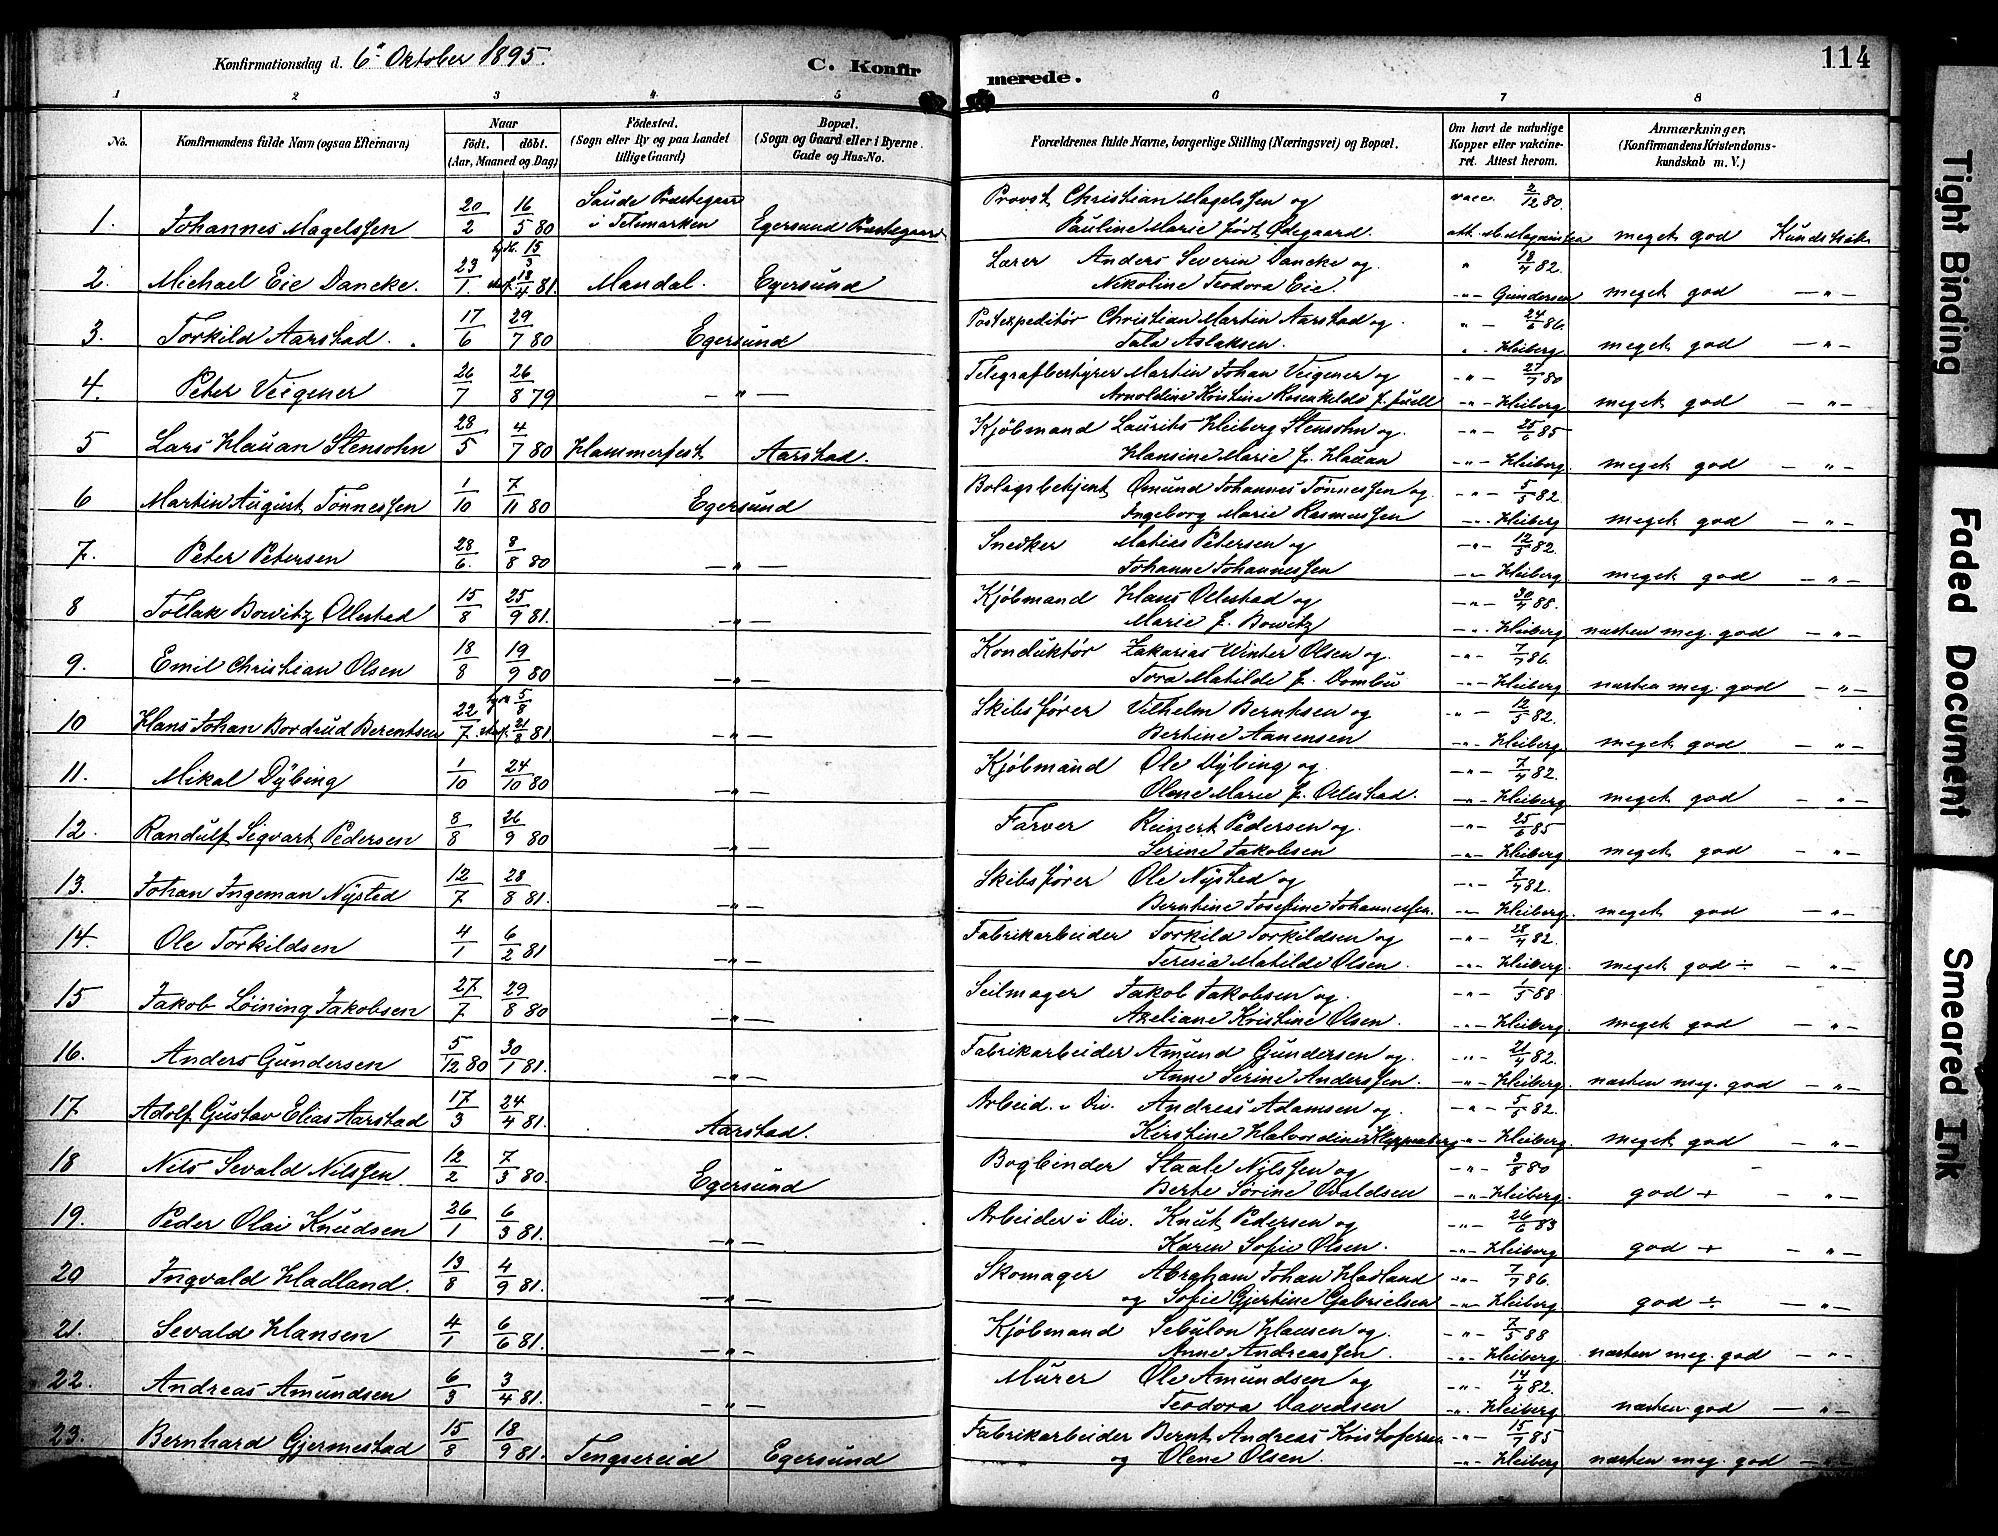 Konfirmationsdag d. 6te Oktober 1895.
C. Konfirmerede.
114
1 2 3 4 5 6 7 8
No.
Konfirmandens fulde Navn (ogsaa Efternavn)
Naar
født. døbt.
(Aar, Maaned og Dag)
Fødested.
(Sogn eller By og paa Landet
tillige Gaard)
Bopæl.
(Sogn og Gaard eller i Byerne
Gade og Hus-No.
Forældrenes fulde Navne, borgerlige Stilling (Næringsvei) og Bopæl.
Om havt de naturlige
Kopper eller vakcine-
ret. Attest herom.
Anmærkninger.
(Konfirmandens Kristendoms-
kundskab m. V.)
1. Johannes Magelssen 20/2 16/5 80 Saude Præstegaar i Telemarken Egersund Præstegaard Provst Christian Magelssen og
Pauline Marie født Ødegaard. vacc. 2/12 80. att. meget god Kundskab
2. Michael Eie Dancke. 23/1 15/3 18/4 81. Mandal. Egersund Lærer Anders Severin Dancke og
Nikoline Teodora Eie. " 18/4 82. -"- Gundersen meget god -"-
3. Torkild Aarstad. 17/6 29/7 80 Egersund Postexpeditør Christian Martin Aarstad og
Tala Aslaksen. "- 24/6 86. " Heiberg meget god -"-
4. Peter Veigener 26/7 26/8 79 -"- Telegrafbestyrer Martin Johan Veigener og
Arnoldine Kristine Rosenkilde f. Juell -"- 27/7 80 -"- Heiberg meget god -"-
5 Lars Hauan Stensohn 28/5 4/7 80 Hammerfest Aarstad. Kjøbmand Laurits Heiberg Stensohn og
Hansine Marie f. Hauan -"- 25/6 85 -"- Heiberg. meget god -"-
6 Martin August Tønnessen 1/10 7/11 80 Egersund Bolagsbetjent Ømund Johannes Tønnessen og
Ingeborg Marie Rasmussen -"- 5/5 82. -"- Heiberg meget god -"-
7. Peter Petersen 28/6. 8/8 80 -"- Snedker Matias Petersen og
Johanne Johannessen -"- 12/5 82. -"- Heiberg. meget god -"-
8 Tollak Bowitz Ollestad 15/8 25/9 81. -"- Kjøbmand Hans Ollestad og
Marie f. Bowitz -"- 30/4 88. -"- Heiberg næsten meg. god -"-
9. Emil Christian Olsen 18/8 19/9 80 -"- Konduktør Zakarias Winter Olsen og
Tora Matilde f. Dombu -"- 7/7 86. -"- Heiberg næsten meg. god -"-
10 Hans Johan Bordrud Berentsen 22/7 5/8 21/8 81. -"- Skibsfører Vilhelm Berntsen og
Bertine Aanensen -"- 12/5 82. -"- Heiberg meget god -"-
11. Mikal Dybing 1/10 24/10 80 -"- Kjøbmand Ole Dybing og
Olene Marie f. Ollestad. -"- 7/4 82. -"- Heiberg meget god -"-
12. Randulf Sigvart Pedersen 8/8 26/9 80 -"- Farver Reinert Pedersen og
Serine Jakobsen -"- 25/6 85 -"- Heiberg. meget god -"-
13. Johan Ingeman Nysted 12/7 28/8 81. -"- Skibsfører Ole Nysted og
Berntine Josefine Johannessen. -"- 7/4 82. -"- Heiberg. meget god -"-
14. Ole Torkildsen 4/1 6/2 81 -"- Fabrikarbeider Torkild Torkildsen og
Teresia Matilde Olsen. -"- 28/4 82. -"- Heiberg. meget god ÷ -"-
15 Jakob Løining Jakobsen 27/7 29/8 80 -"- Seilmager Jakob Jakobsen og
Axeliane Kristine Olsen. -"- 1/5 88. -"- Heiberg. meget god -"-
16. Anders Gundersen 5/12 80 30/1 81. -"- Fabrikarbeider Amund Gundersen og
Anne Serine Anderssen. -"- 21/4 82. -"- Heiberg næsten meg. god -"-
17 Adolf Gustav Elias Aarstad 17/3 24/4 81. Aarstad. Arbeid. i Div. Andreas Adamsen og
Kirstine Halvordine -"- 5/5 82. -"- Heiberg. meget god -"-
18 Nils Sevald Nilssen. 12/2 7/3 80. Egersund Bogbinder Staale Nilssen og
Berte Sørine Osvaldsen -"- 3/8 80 -"- Heiberg. god + -"-
19. Peder Olai Knudsen 26/1 6/3 81. -"- Arbeider i Div. Knut Pedersen og
Karen Sofie Olsen. -"- 26/6 83 -"- Heiberg god + -"-
20 Ingvald Hadland. 13/8 4/9 81. -"- Skomager Abraham Johan Hadland
og Sofie Gjertine Gabrielsen -"- 7/7 86. -"- Heiberg god ÷ -"-
21. Sevald Hansen 4/1 6/6 81. -"- Kjøbmand Sebulon Hansen og
Anne Andreassen. -"- 7/5 88 -"- Heiberg næsten meg. god -"-
22. Andreas Amundsen 6/3 3/4 81. -"- Murer Ole Amundsen og
Teodora Davedsen -"- 14/4 82. -"- Heiberg næsten god -"-
23. Bernhard Gjermestad 15/8 18/9 81. Tengsereid Egersund Fabrikarbeider Bernt Andreas Kristofersen
og Olene Olsen. -"- 15/7 85 -"- Heiberg næsten meg. god -"-
Tight Binding
Faded Document
Smeared Ink